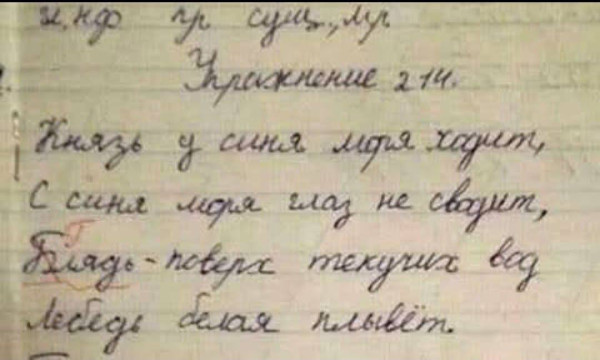 и, н.ф пр сущ., м.р.
Упражнение 214.
Князь у синя моря ходит,
С синя моря глаз не сводит,
Г
Блядь - поверх текучих вод
Лебедь белая плывёт.